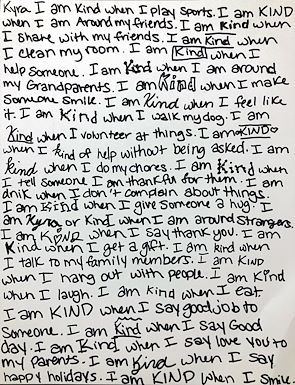 Kyra. I am Kind when I play sports. I am KIND
when I am Around my friends. I am Kind when
I share with my friends. I am Kind when
I clean my room. I am Kind when I
help someone. I am Kind when I am around
my Grandparents. I am Kind when I make
Someone smile. I am Kind when I feel like
it. I am Kind when I walk my dog. I am
Kind when I volunteer at things. I am KIND
when I kind of help without being asked. I am
kind when I do my chores. I am Kind when
I tell someone I am thankful for them. I am
dnik when I don't complain about things.
I am Kind when I give someone a hug. I
am Kyra or Kind when I am around Strangers.
I am KiND when I say thank you. I am
Kind when I get a gift. I am kind when
I talk to my family members. I am KIND
when I hang out with people. I am Kind
when I laugh. I am kind when I eat.
I am KIND when I say good job to
Someone. I am Kind when I say Good
day. I am Kind when I say love you to
my parents. I am Kind when I say
happy holidays. I am KIND When I Smile